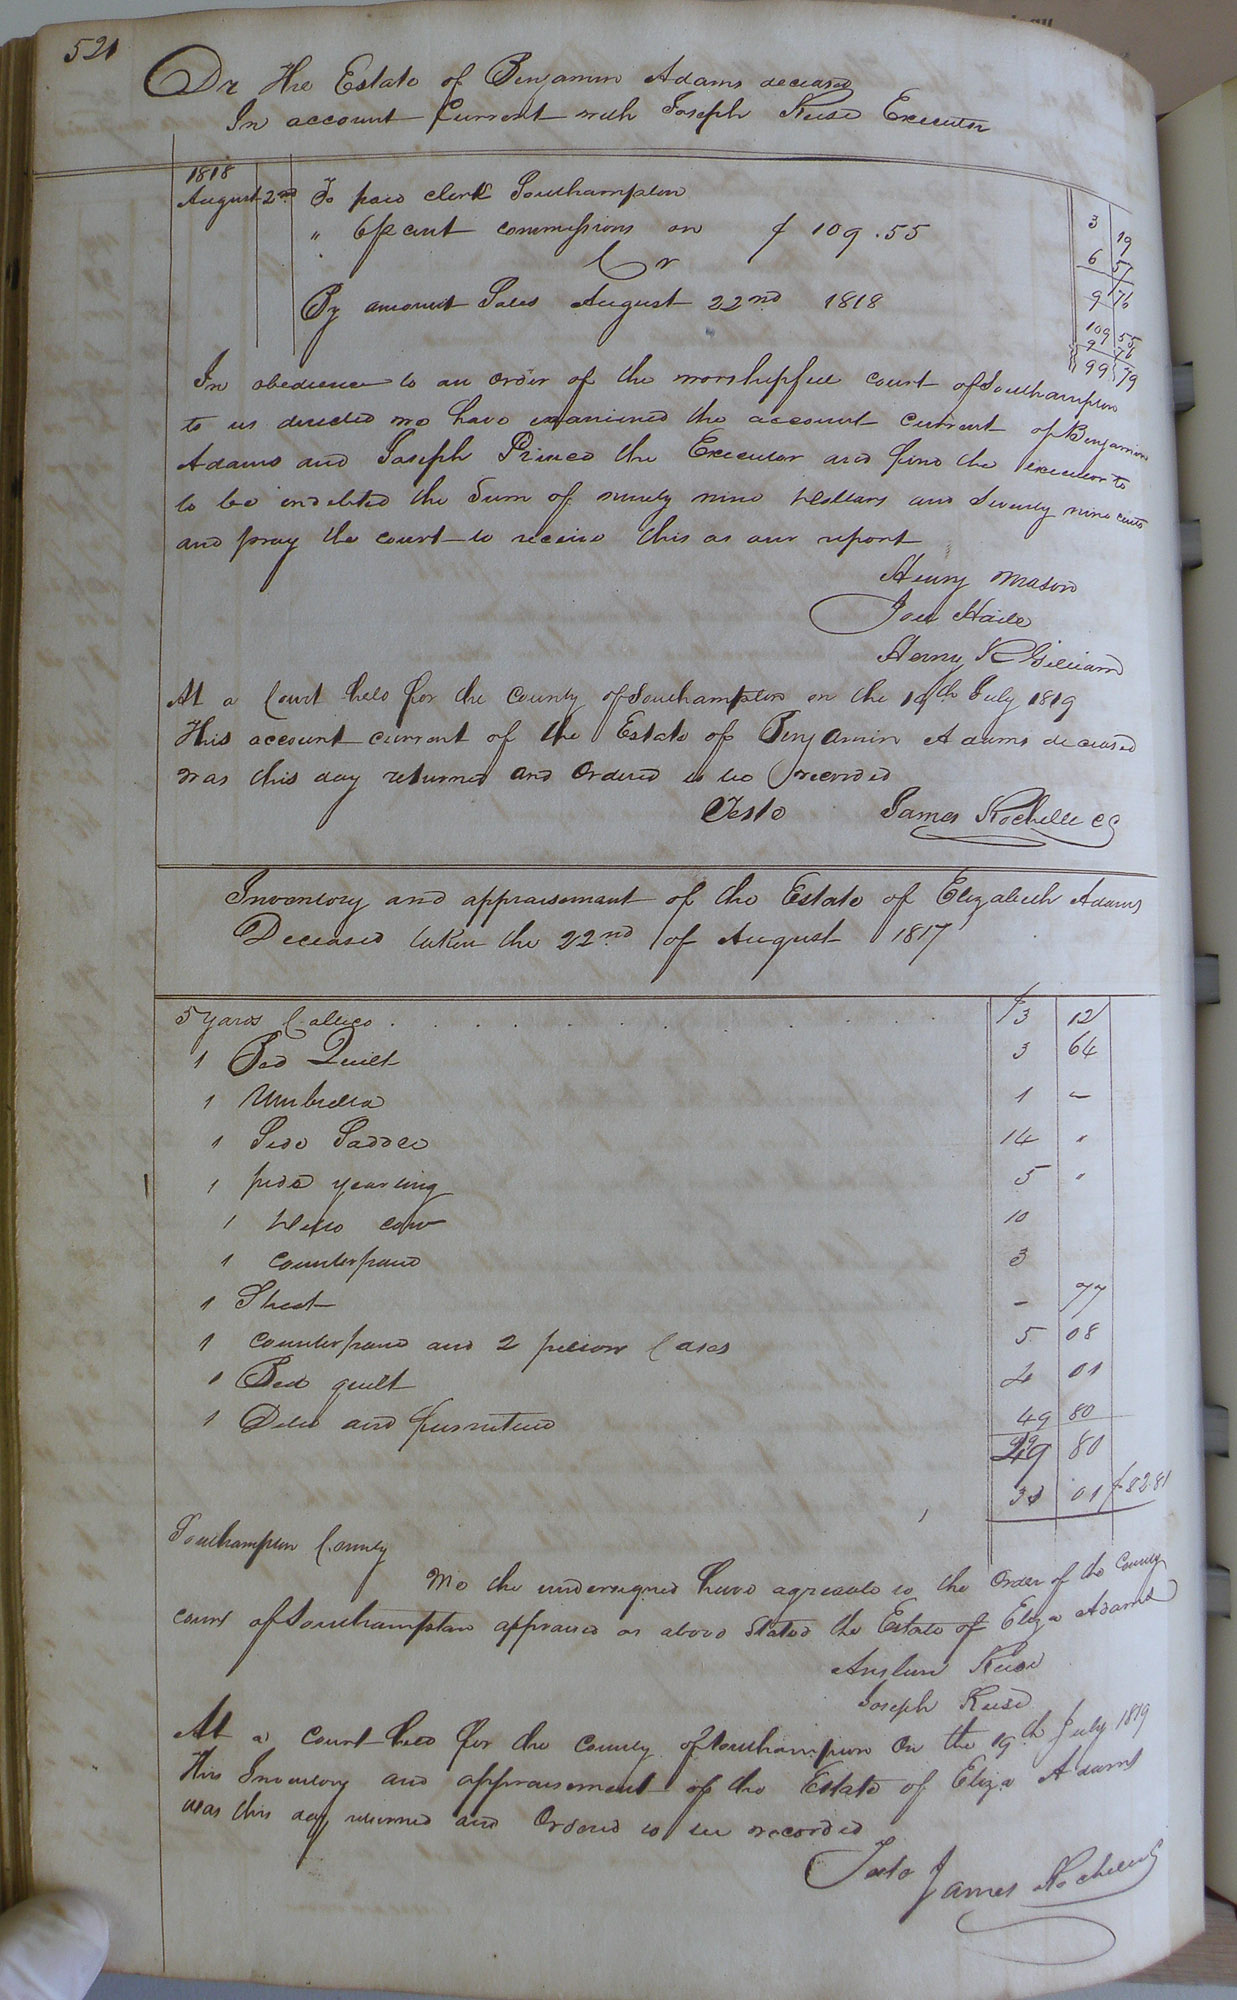 521
Dr The Estate of Benjamin Adams deceased
In account Current with Joseph Reese Executor
1818
August 2nd To paid clerk Southampton 3 19
" 6 pr cent commissions on $ 109.55 6 57
9 76
Cr
By amount Sales August 22nd 1818 109 55
9 76
99 79
In obedience to an order of the worshipfull court of Southampton
to us directed we have examined the account current of Benjamin
Adams and Joseph the Executor and find the executor to
be indebted the Sum of ninety nine Dollars and Seventy nine cents
and pray the court to receive this as our report
Henry Mason
Haile
Henry K Gilliam
At a Court held for the County of Southampton on the 19th July 1819
This account current of the Estate of Benjamin Adams deceased
was this day returned and Ordered to be recorded
Teste James Rochelle CC
Inventory and appraisement of the Estate of Elizabeth Adams
Deceased taken the 22nd of August 1817
5 yards Callico . . . . . . . . . . . . . $3 12
1 Bed Quilt 3 64
1 Umbrella 1 –
1 Side Saddle 14 "
1 yearling 5 "
1 cow 10
1 counterpane 3
1 Sheet – 77
1 counterpane and 2 pillow Cases 5 08
1 Bed quilt 4 01
1 Ditto and furniture 49 80
49 80
33 01 $82.81
Southampton County
We the undersigned have agreeable to the Order of the County
court of Southampton appraised as above Stated the Estate of Eliza Adams
Reese
Joseph Reese
At a court held for the county of Southampton On the 19th July 1819
This Inventory and appraisement of the Estate of Eliza Adams
was this day returned and Ordered to be recorded
Teste James Rochelle CC